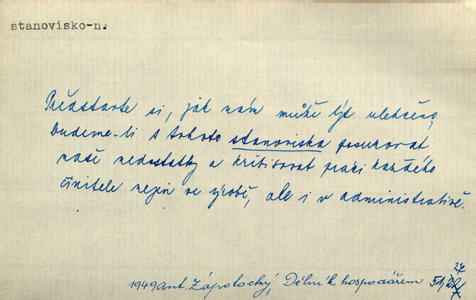 stanovisko-n.
Představte si, jak nám může být ulehčeno,
budeme-li s tohoto stanoviska posuzovat
naše nedostatky a kritisovat práci každého
činitele nejen ve výrobě, ale i v administrativě.
1949 Ant. Zápotocký, Dělník hospodářem